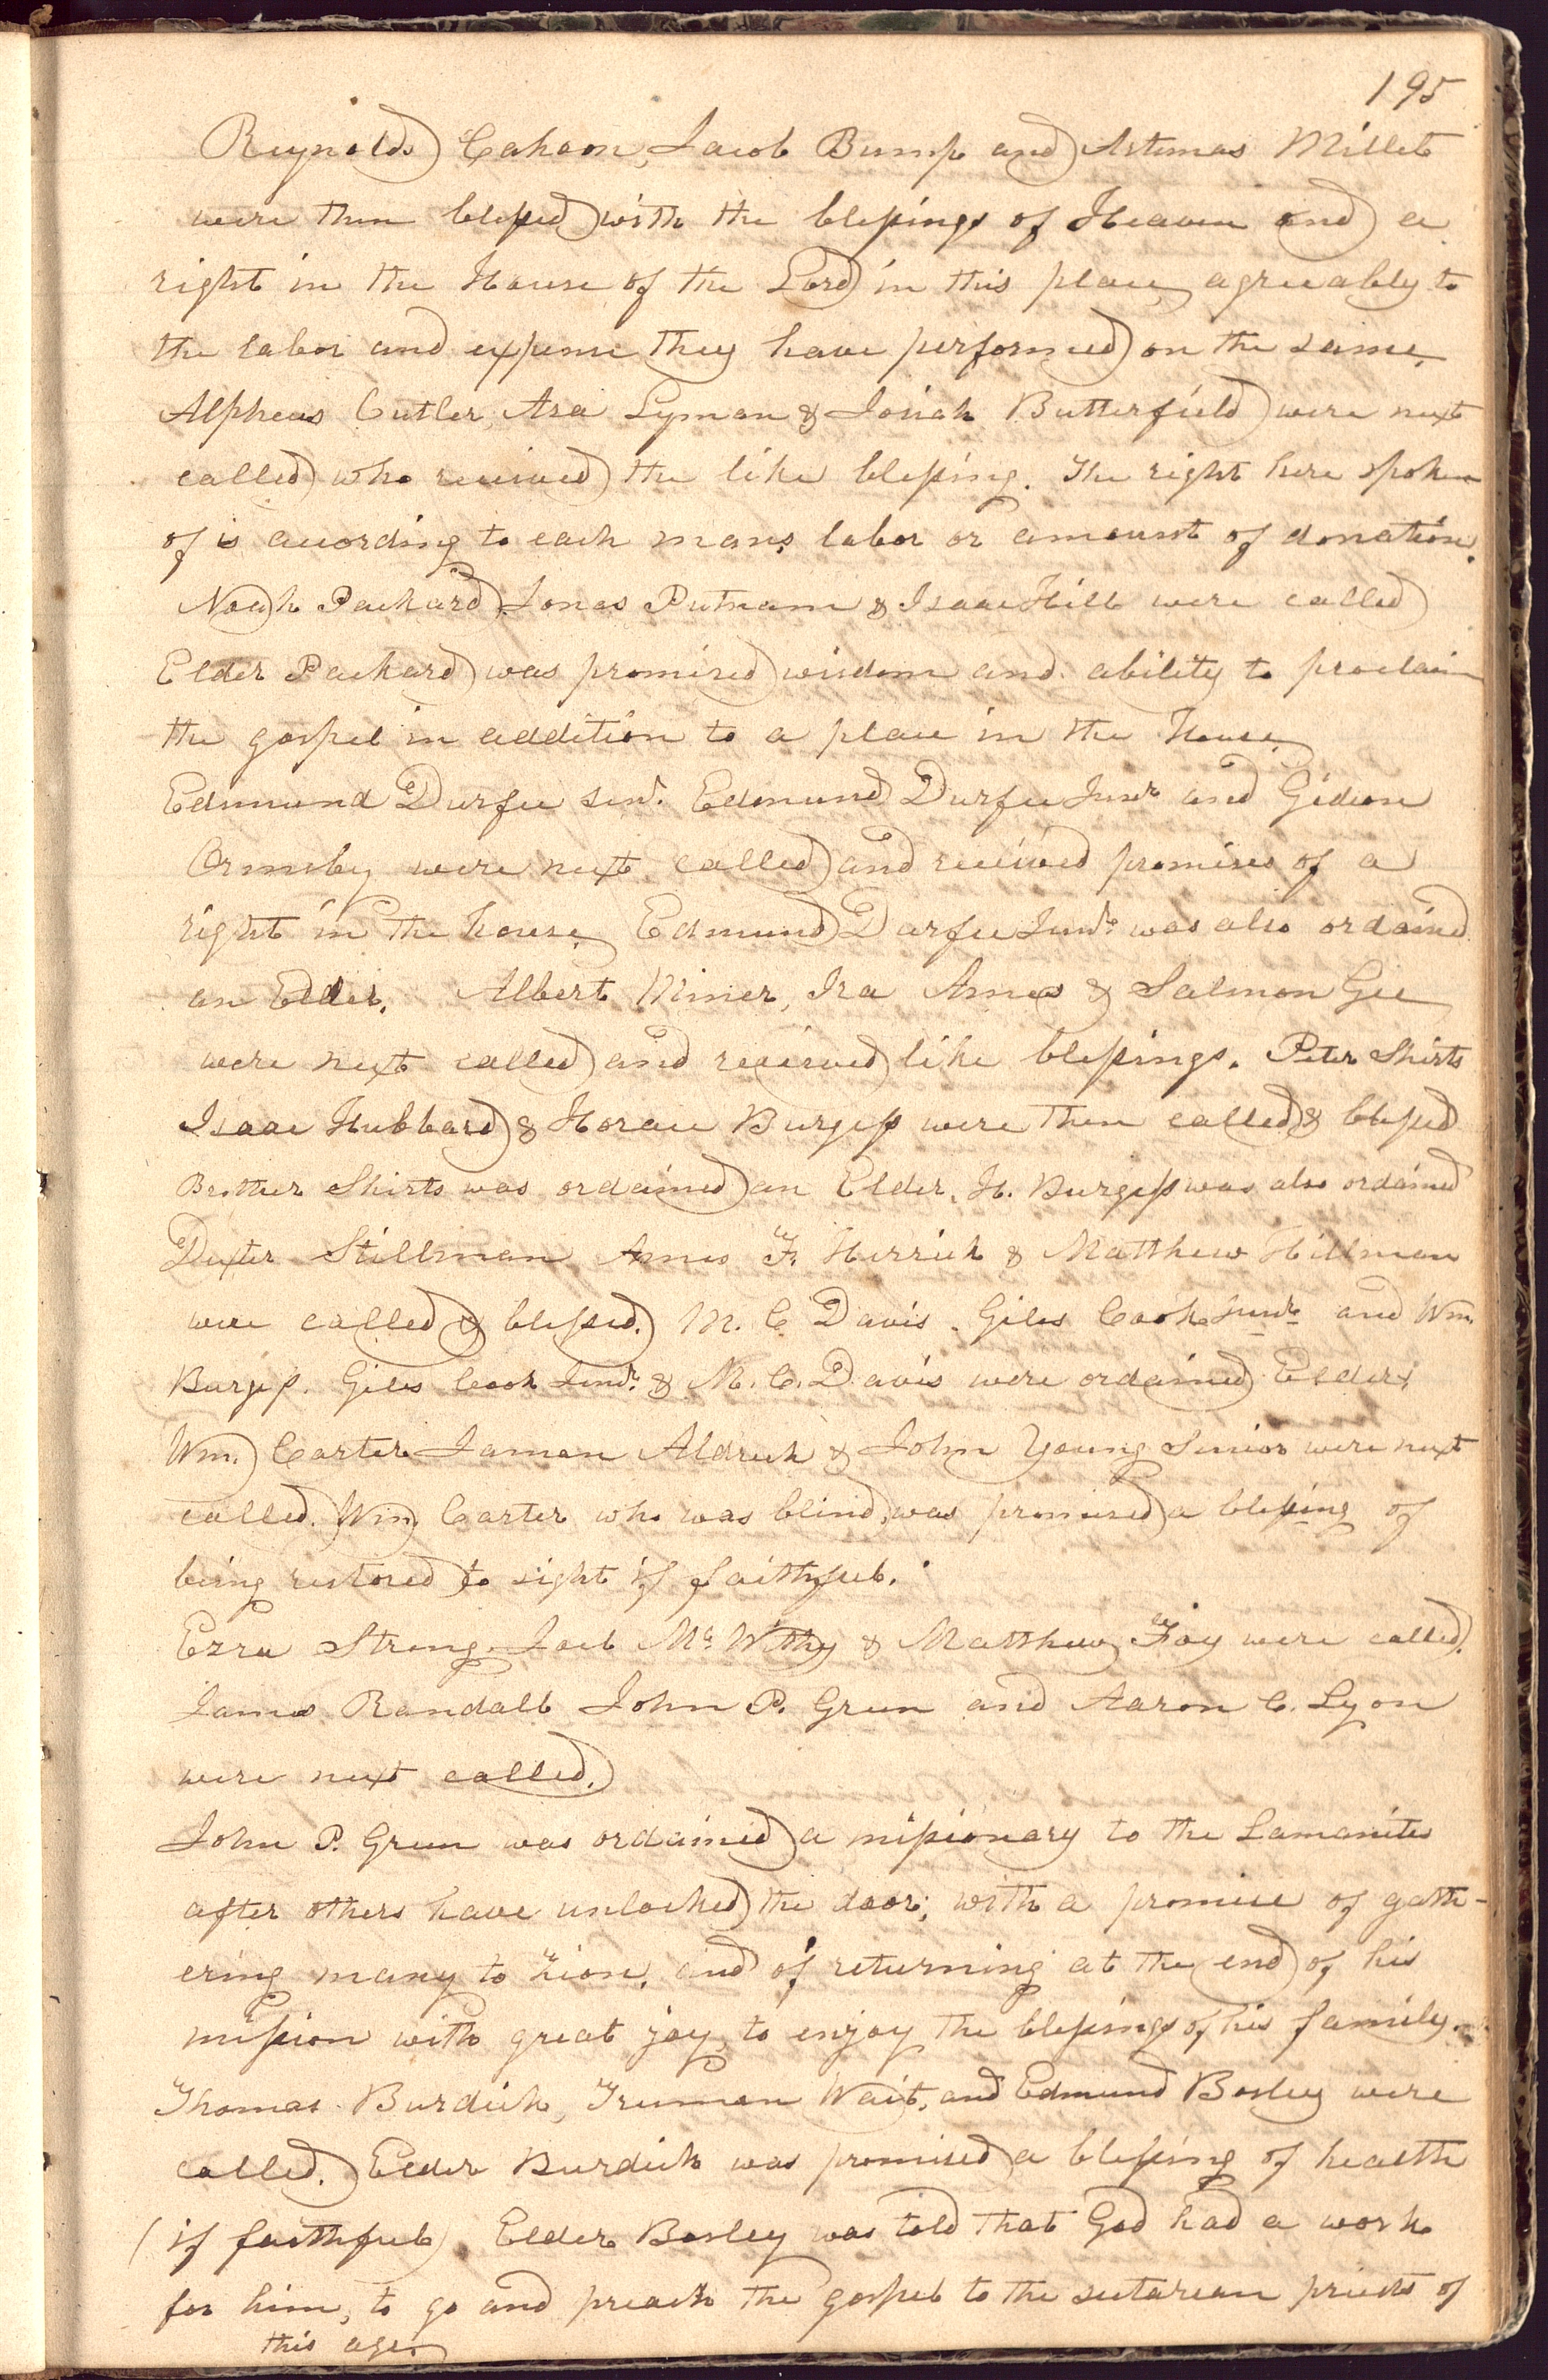 195
Reynolds Cahoon, Jacob Bump and Artemas Millet
were then blessed with the blessings of Heaven and a
right in the House of the Lord in this place, agreeably to
the labor and expense they have performed on the same.
Alpheas Cutler, Asa Lyman & Josiah Butterfield were next
called who received the like blessing. The right here spoken
of is acording to each mans labor or amount of donation.
Noah Packard, Jonas Putnam & Isaac Hill were called
Elder Packard was promised wisdom and ability to proclaim
the gospel in addition to a place in the House.
Edmund Durfee senr. Edmund Durfee Junr and Gideon
Ormsby were next called and received promises of a
right in the house, Edmund Durfee Junr. was also ordained
an Elder. Albert Miner, Ira Ames & Salmon Gee
were next called and received like blessings. Peter Shirts
Isaac Hubbard & Horace Burgess were then called & blessed
Brother Shirts was ordained an Elder, H. Burgess was also ordained
Dexter Stillman Amos F. Herrick & Matthew Hillman
were called & blessed. M. C. Davis. Giles Cook Junr and Wm.
Burgess. Giles Cook Junr. & M. C. Davis were ordained Elders.
Wm. Carter Jaman Aldrich & John Young Senior were next
called. Wm. Carter who was blind, was promised a blessing of
being restored to sight if faithful.
Ezra Strong. Joel Mc Withy & Matthew Foy were called.
James Randall John P. Green and Aaron C. Lyon
were next called.
John P. Green was ordained a missionary to the Lamanites
after others have unlocked the door; with a promise of gath-
ering many to Zion, and of returning at the end of his
mission with great joy, to enjoy the blessings of his family.
Thomas Burdick, Truman Wait, and Edmund Bosley were
called. Elder Burdick was promised a blessing of health
(if faithful) Elder Bosley was told that God had a work
for him, to go and preach the gospel to the sectarean priests of
this age.